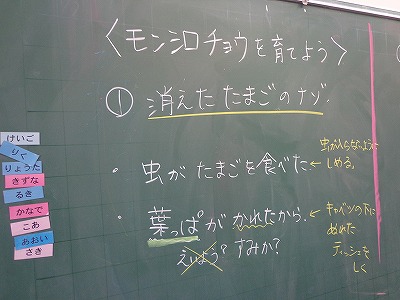 〈モンシロチョウを育てよう〉
① 消えたたまごのナゾ
・虫がたまごを食べた
←虫が入らないように
しめる。
・葉っぱがかれたから。
えいよう？すみか？
←キャベツの下に
ぬれた
ティッシュを
しく
けいご
りく
りょうた
きずな
るき
かなで
こあ
あおい
さき